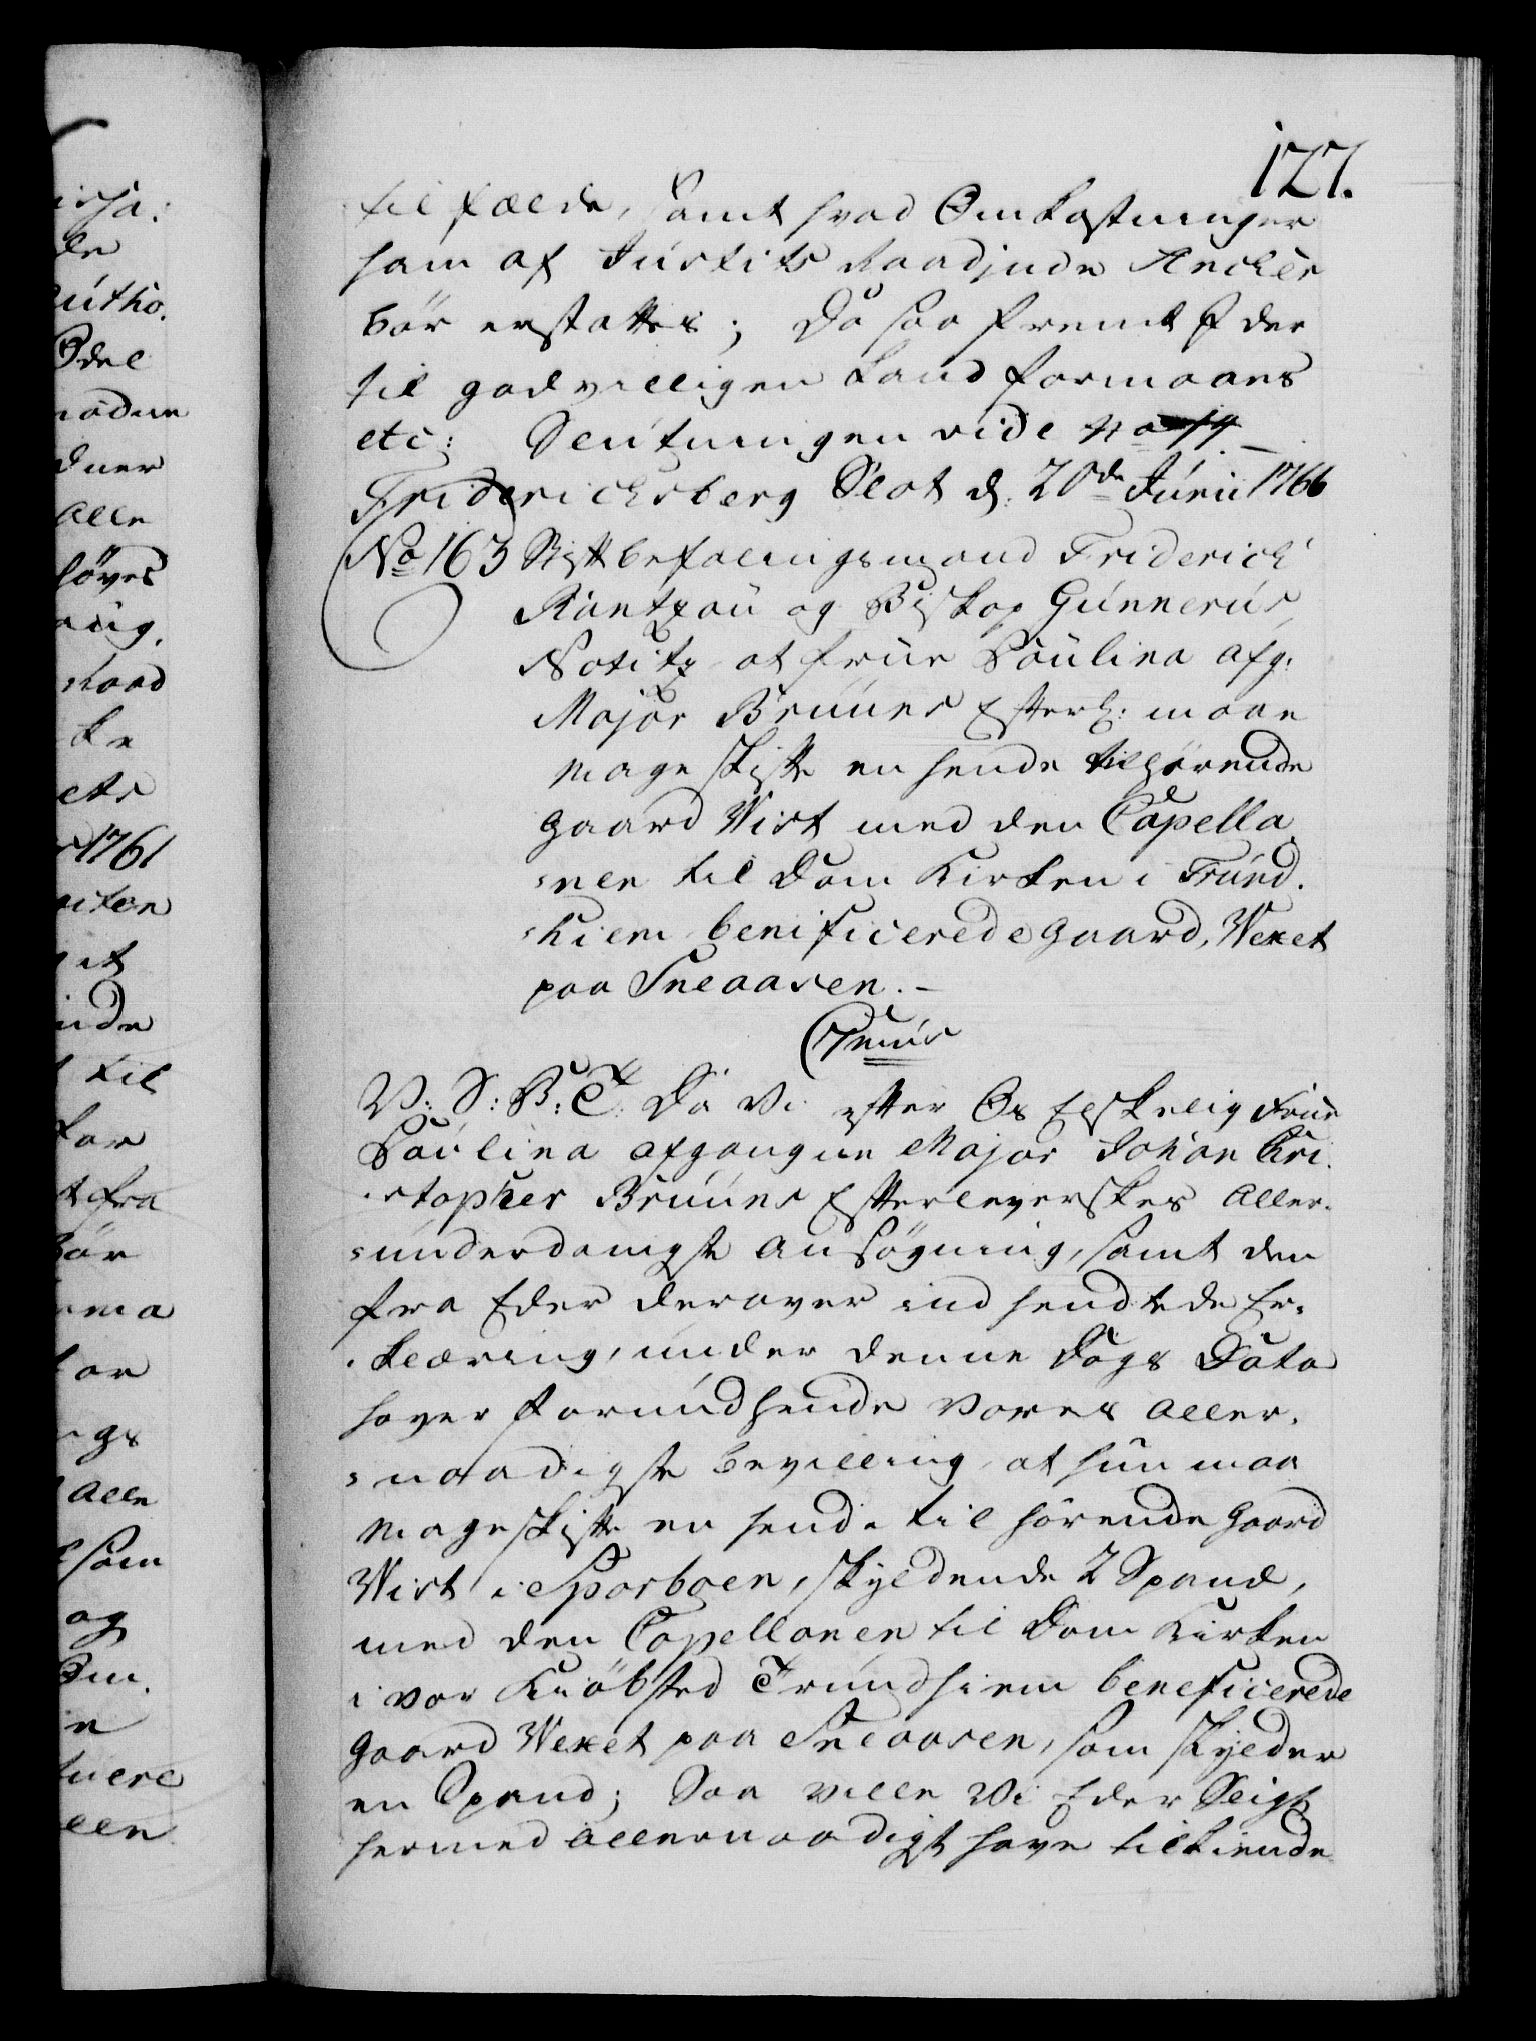 127.
tilfælde, samt hvad Omkostninger
ham af Justits Raadinde Ancher
bør erstattes; Da saa fremt I der
til godvilligen kand formaaes
etc: Slutningen vide
Friderichsberg Slot d: 20de Junii 1766
No 163 Stiftbefalingsmand Friderich
Rantzau og Biskop Gunnerus,
Notitz at frue Paulina afg:
Major Bruuns Efterl: maae
mageskifte en hende tilhørende
gaard Wist med den Capella
=nen til Dom Kirken i Trund=
=hiem benificerede gaard, Weket
paa Sneaasen. –
V: S: B: T: Da Vi efter Os Elskelig Frue
Paulina afgangne Major Johan Chri=
=stopher Bruuns Efterleverskes Aller=
=underdanigste Ansøgning, samt den
fra Eder derover indsendtede Er=
=klæring, under denne Dags Dato
haver forundt hende Vores Aller=
=naadigste Bevilling at hun maa
mageskifte en hende tilhørende Gaard
Wist i Sparboen, skyldende 2 Spand,
med den Capellanen til Dom Kirken
i vor Kiøbsted Trundhiem beneficerede
gaard Weket paa Sneaasen, som skylder
en Spand; Saa ville Vi Eder Sligt
hermed Allernaadigst have tilkiende